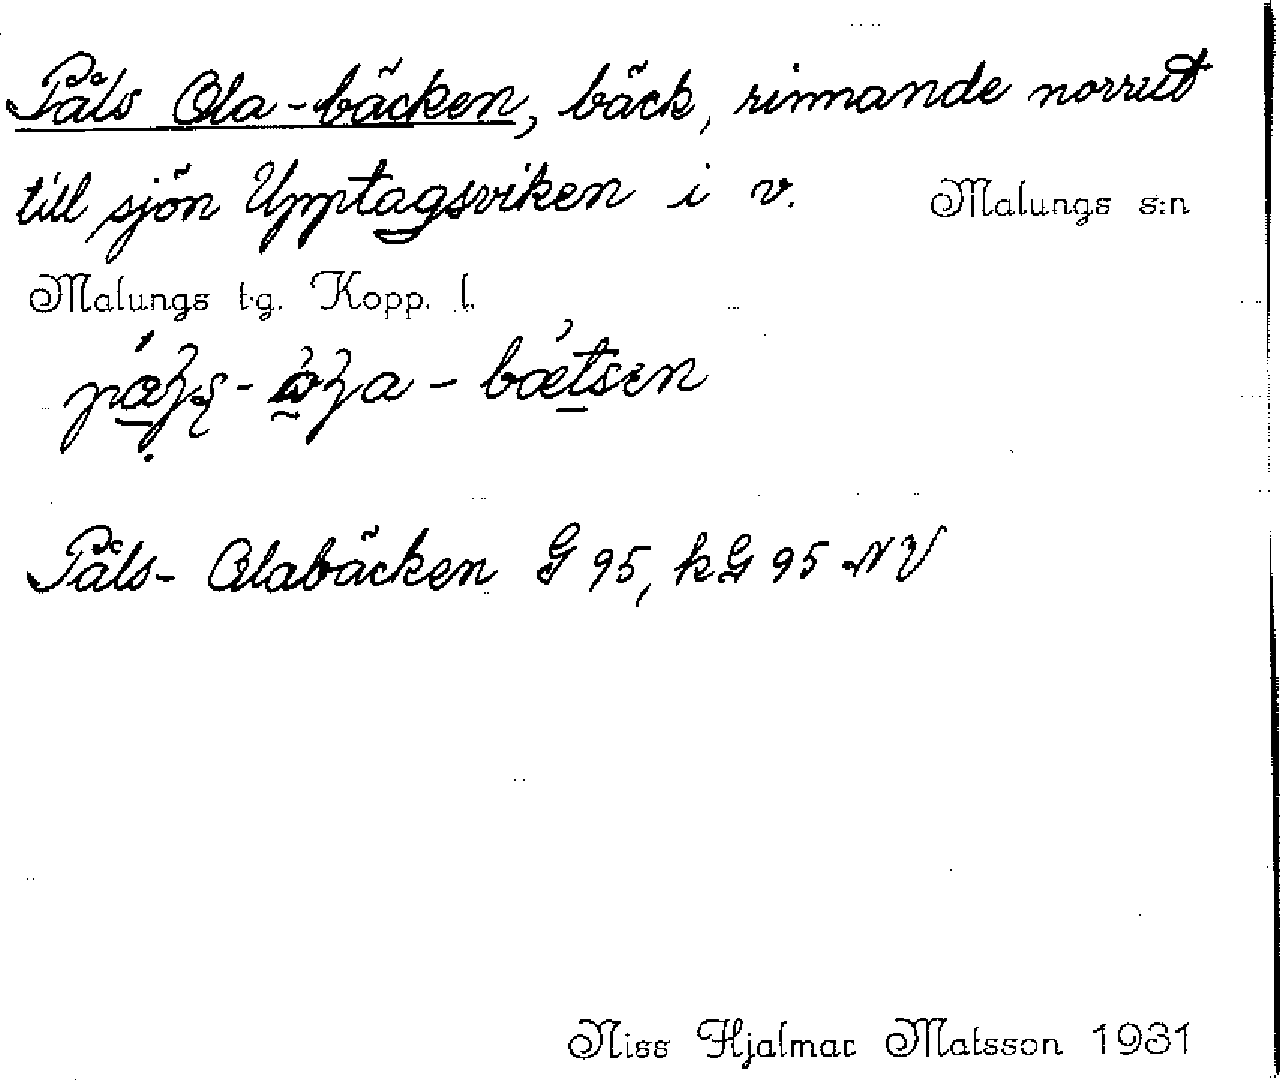 Påls Ola-bäcken, bäck, rinnande norrut
till sjön Upptagsviken i v. Malungs s:n
Malungs t.g. Kopp. l.
Påls- Olabäcken G 95, kG 95 NV
Niss Hjalmar Matsson 1931